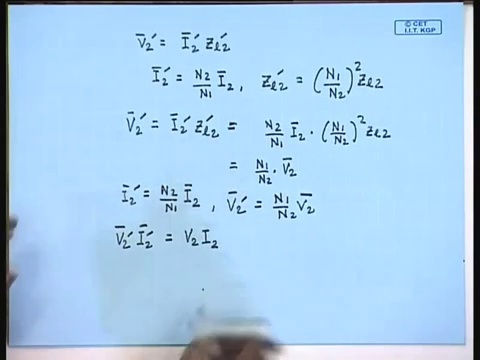 © CET
I.I.T. KGP
V̄₂′ = Ī₂′ Zℓ₂′
Ī₂′ = N₂/N₁ Ī₂, Zℓ₂′ = (N₁/N₂)² Zℓ₂
V̄₂′ = Ī₂′ Zℓ₂′ = N₂/N₁ Ī₂ · (N₁/N₂)² Zℓ₂
= N₁/N₂ · V̄₂
Ī₂′ = N₂/N₁ Ī₂, V̄₂′ = N₁/N₂ V̄₂
V̄₂′ Ī₂′ = V₂ I₂